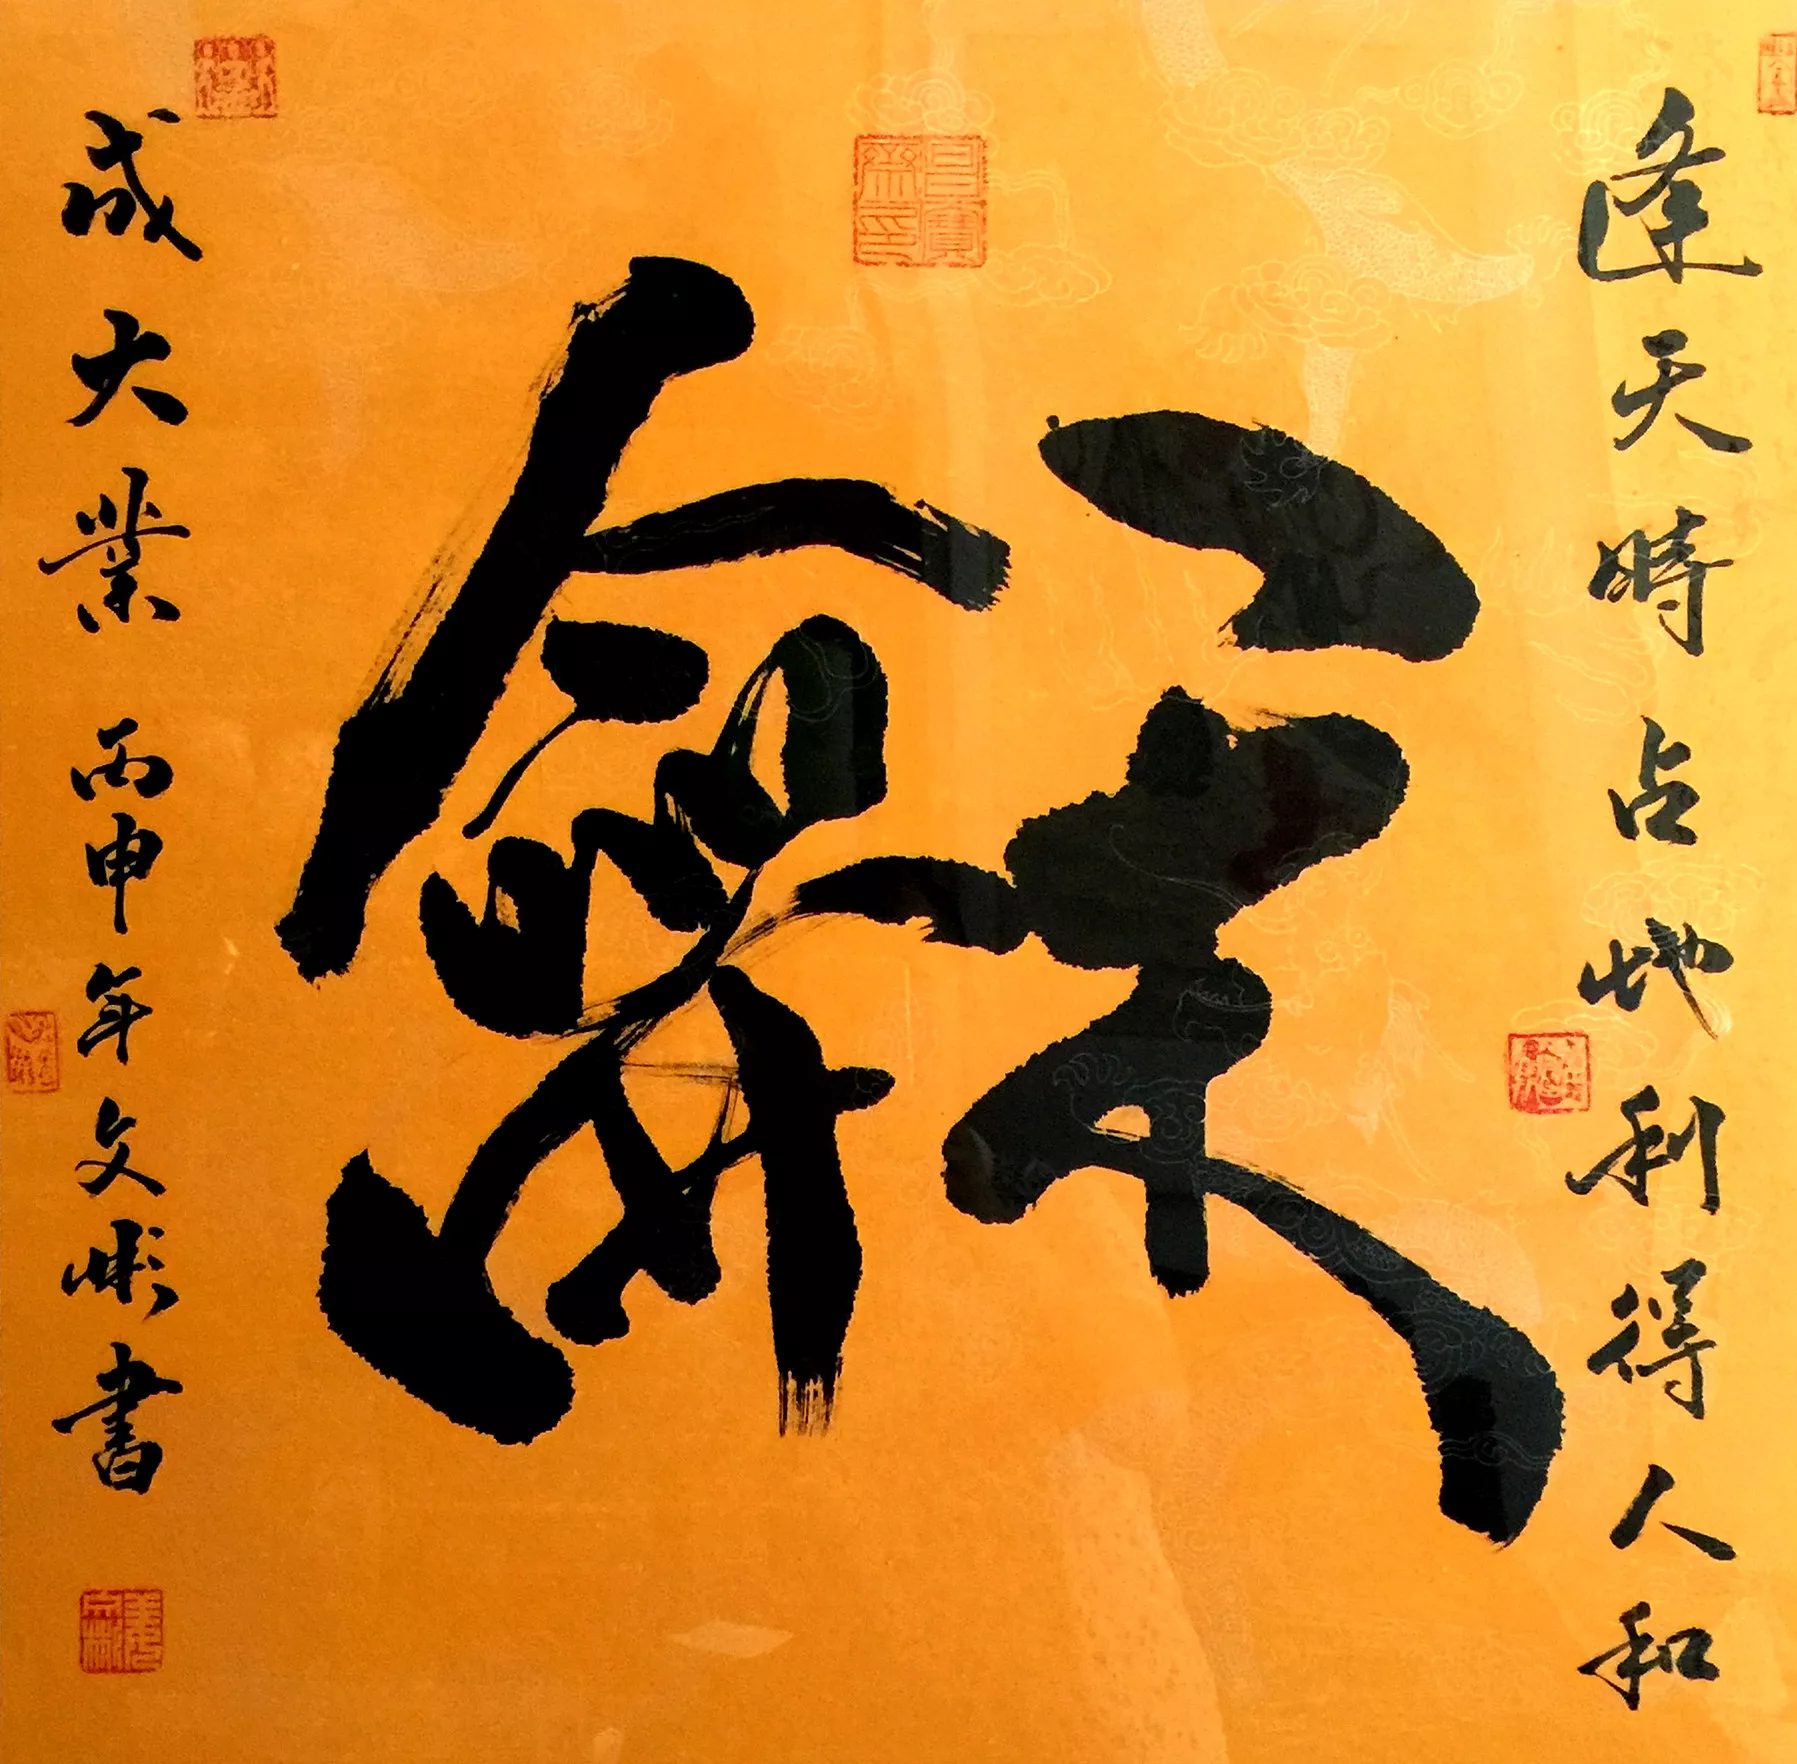 逢天時占地利得人和
龢
成大業 丙申年文彬書